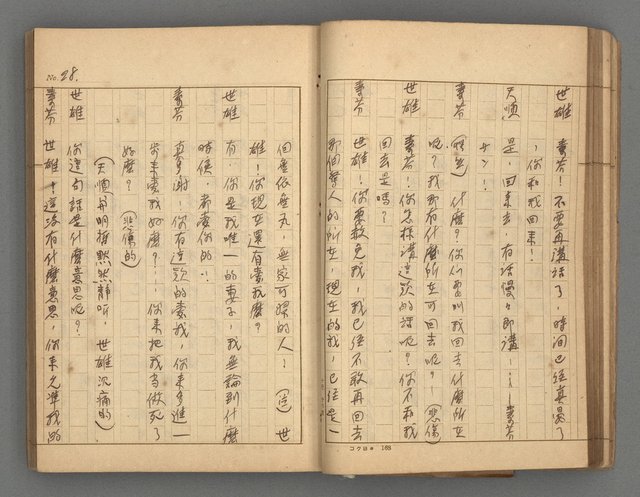 世雄　素芬！不要再講話了，時間已經真晏了
，你和我回來！
天順　是，回来去，有話慢々即講……素芬
サン！
素芬（　）什麼？你们要叫我回去什麼所在
呢？我那有什麼所在可回去呢？（悲傷）
素芬！你怎樣講這款的話呢？你不和我
回去是嗎？
世雄！你要赦免我，我已經不敢再回去
那個　人的所在，現在的我，已經是一
コクヨ 168
No. 28.
個無依無丸，無家可歸的人！（　）世
雄！你現在還有愛我麼？
世雄　有，你是我唯一的妻子，我無論到什麼
時候，都愛你的！
素芬　真多謝！你有這款的愛我，你来多進一
步来愛我好麼？……你来把我當做死了
好麼？（悲傷的）
（天順與明　默然静听，世雄沉痛的）
世雄　你這句話是什麼意思呢？
素芬　世雄！這没有什麼意思，你来允准我的